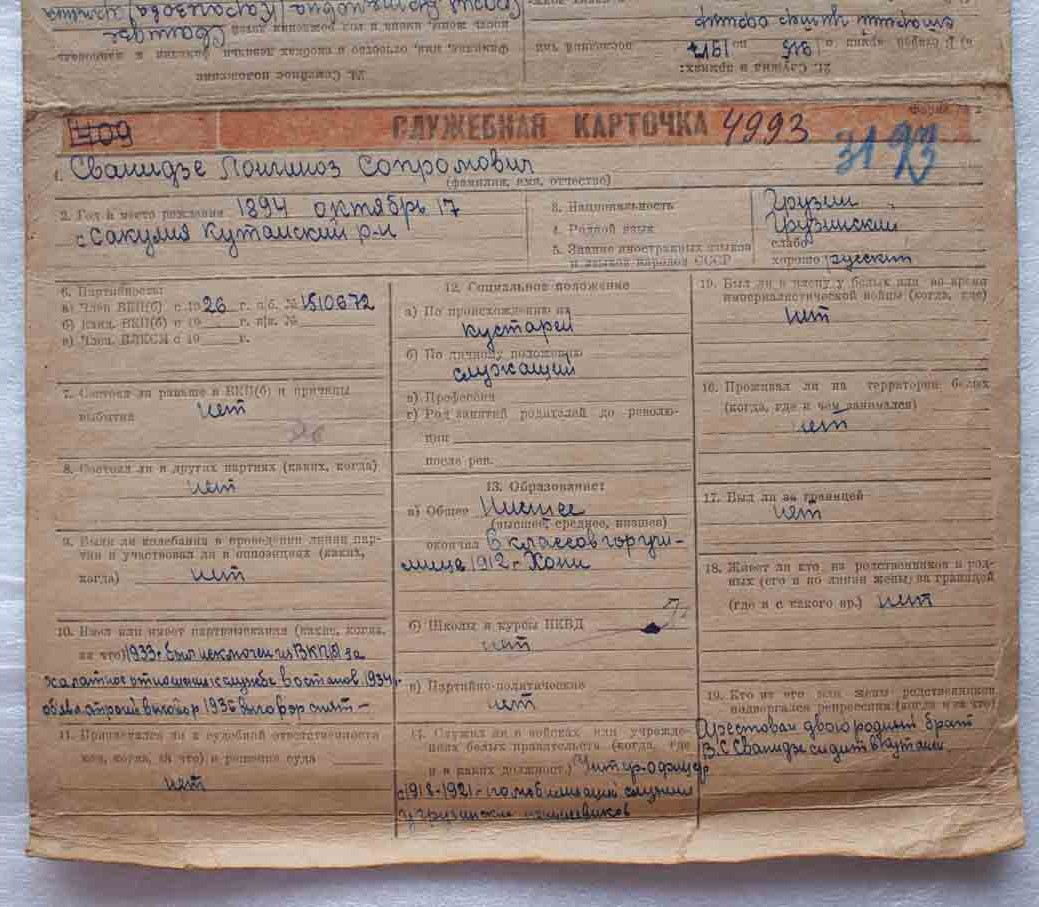 24. Семейное положение
Фамилия, имя, отчество и сколько
Сванидзе
21. Служба в армиях:
а) В старой армии с 1915 по 1917
Форма № 1
СЛУЖЕБНАЯ КАРТОЧКА 4993
3193
1. Сванидзе Сопромович
(фамилия, имя, отчество)
2. Год и место рождения 1894 октябрь 17
с Сакулия Кутаисский р-н
3. Национальность Грузин
4. Родной язык Грузинский
5. Знание иностранных языков слабо
и языков народов СССР хорошо русский
6. Партийность:
а) Член ВКП(б) с 1926 г. п/б. № 1510672
б) Канд. ВКП(б) с 19 г. п/к. №
в) Член. ВЛКСМ с 19 г.
7. Состоял ли раньше в ВКП(б) и причины
выбытия нет
8. Состоял ли в других партиях (каких, когда)
нет
9. Были ли колебания в проведении линии пар-
тии и участвовал ли в оппозициях (каких,
когда) нет
10. Имел или имеет партвзыскания (какие, когда,
за что) 1933г. был исключен из ВКПб за
халатное отношение к службе востанов. 1934г.
строгий выговор 1936 выговор снят -
11. Привлекался ли к судебной ответственности
когда, за что) и решение суда
нет
12. Социальное положение
а) По происхождению из
кустарей
б) По личному положению
служащий
в) Профессия
г) Род занятий родителей до револю-
ции
после рев.
13. Образование:
а) Общее Нисшее
(высшее, среднее, низшее)
окончил 6 классов горучи-
лища 1912г. Хони
б) Школы и курсы НКВД
нет
в) Партийно-политические
нет
14. Служил ли в войсках или учрежде-
ниях белых правительств (когда, где
и в каких должност.) Унтер-офицер
с 1918-1921г. по мобилизации служил
у грузинских меньшевиков
15. Был ли в плену у белых или во время
империалистической войны (когда, где)
нет
16. Проживал ли на территории белых
(когда, где и чем занимался)
нет
17. Был ли за границей
нет
18. Живет ли кто из родственников и род-
ных (его и по линии жены) за границей
(где и с какого вр.) нет
19. Кто из его или жены родственников
подвергался репрессии (когда и за что)
Арестован двоюродный брат
В.С Сванидзе сидит в Кутаиси.